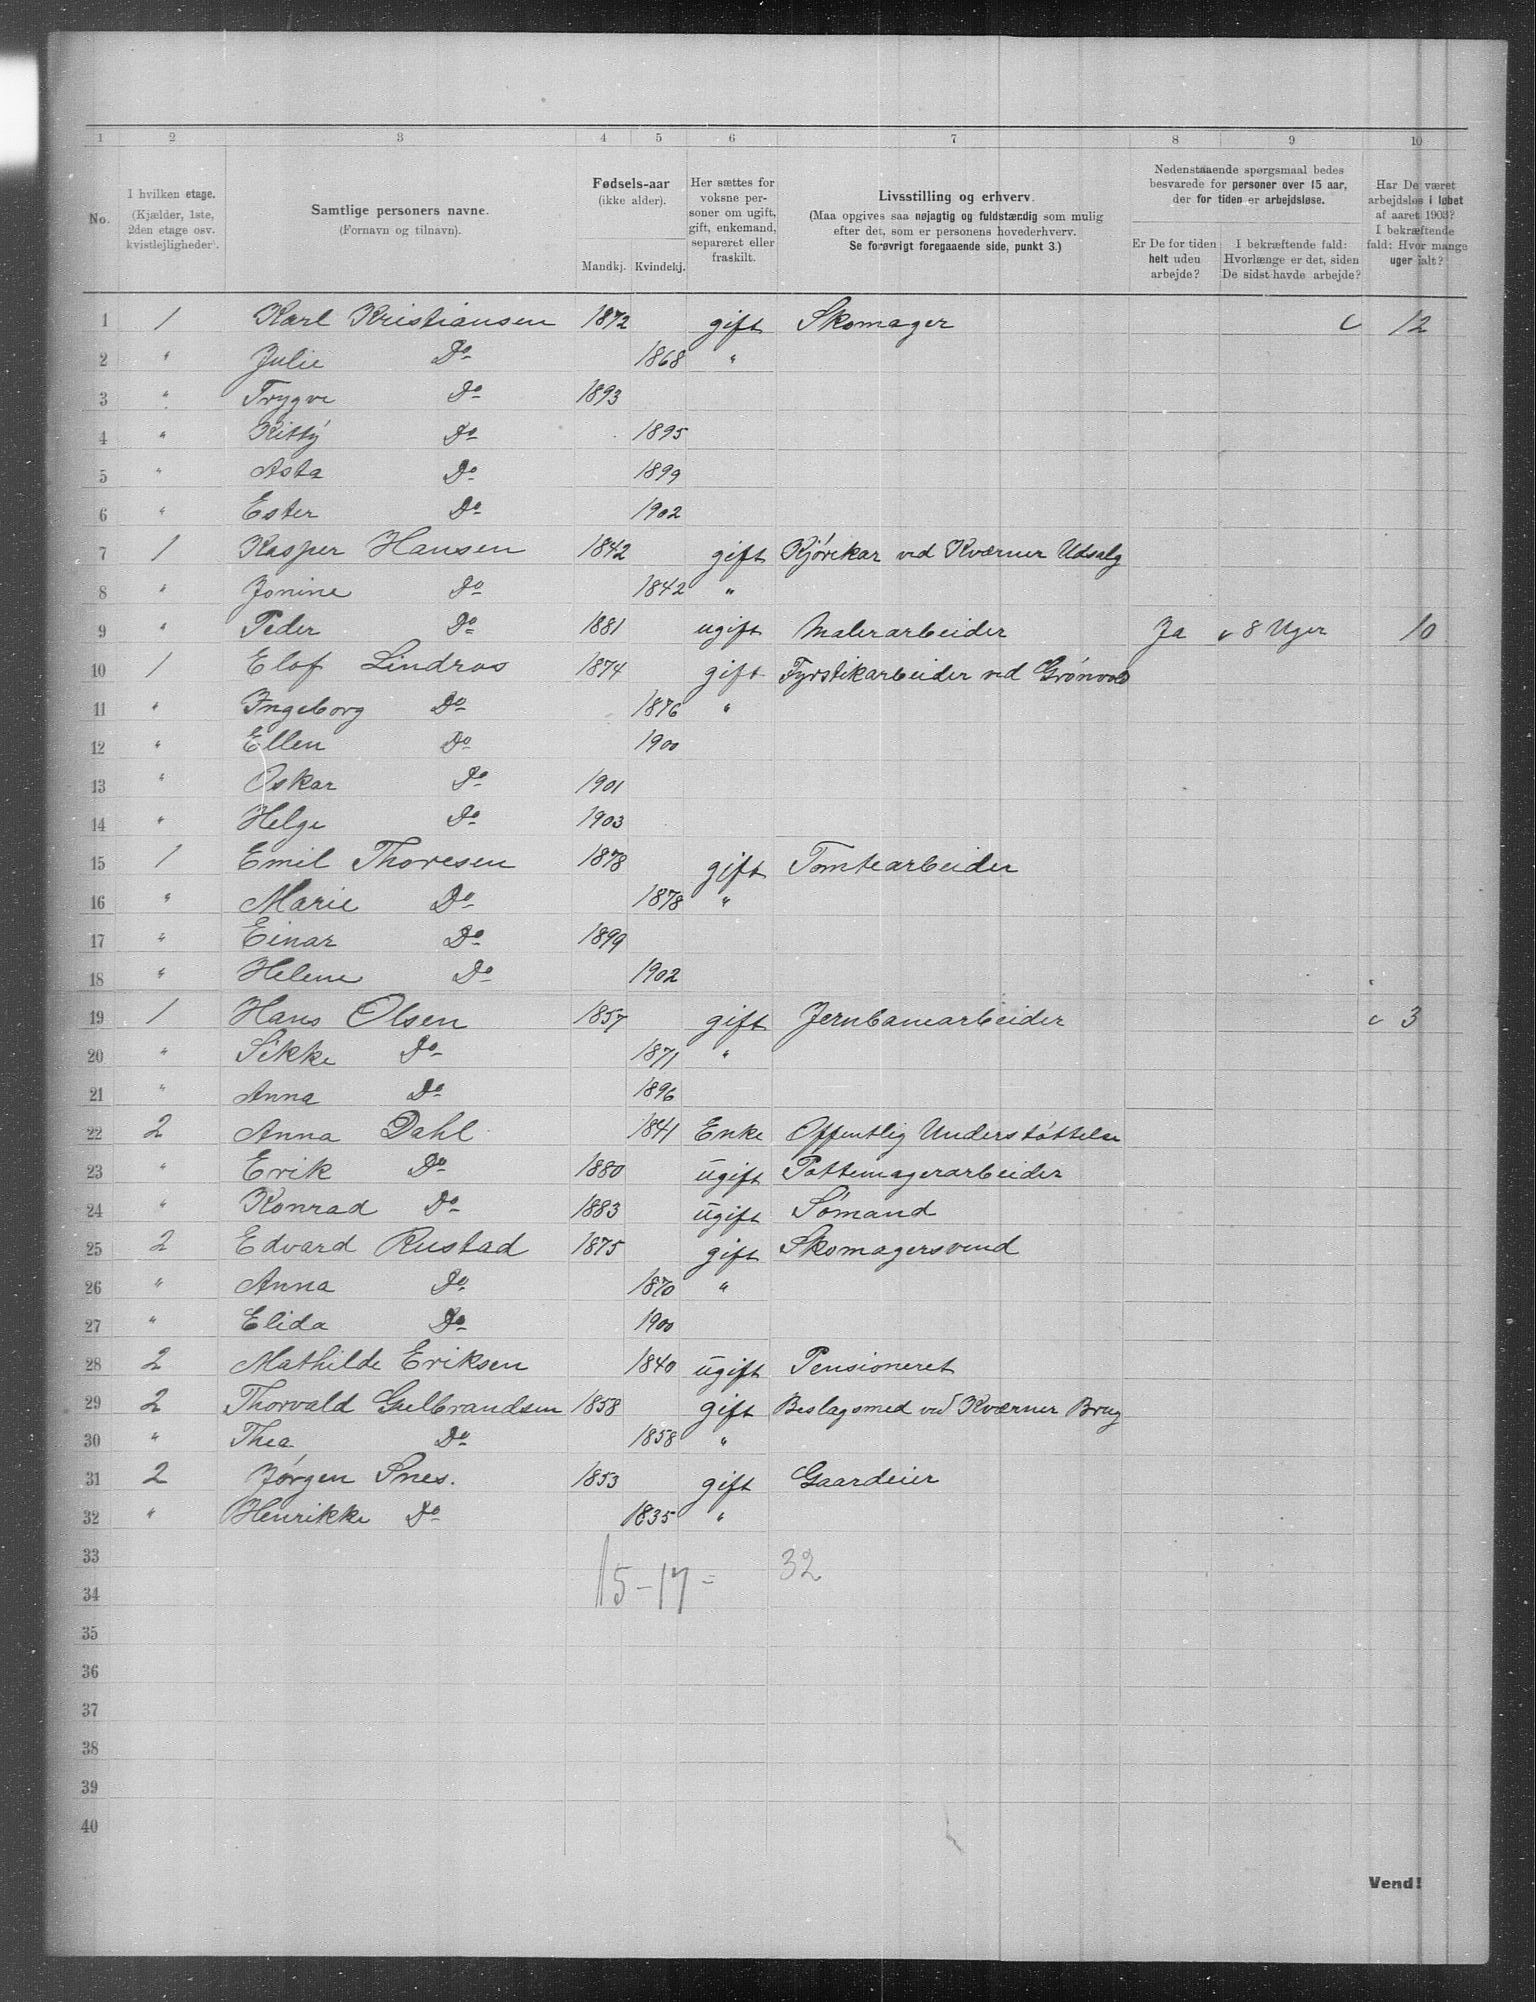 1 2 3 4 5 6 7 8 9 10
No.
I hvilken etage.
(Kjælder, 1ste,
2den etage osv.
kvistlejligheder).
Samtlige personers navne.
(Fornavn og tilnavn).
Fødsels-aar
(ikke alder).
Mandkj. Kvindekj.
Her sættes for
voksne per-
soner om ugift,
gift, enkemand,
separeret eller
fraskilt.
Livsstilling og erhverv.
(Maa opgives saa nøjagtig og fuldstændig som mulig
efter det, som er personens hovederhverv.
Se forøvrigt foregaaende side, punkt 3.)
Nedenstaaende spørgsmaal bedes
besvarede for personer over 15 aar,
der for tiden er arbejdsløse.
Er De for tiden
helt uden
arbejde?
I bekræftende fald:
Hvorlænge er det, siden
De sidst havde arbejde?
Har De været
arbejdsløs i løbet
af aaret 1903?
I bekræftende
fald: Hvor mange
uger ialt?
1 1 Karl Kristiansen 1872 gift Skomager 12
2 " Julie Do 1868 "
3 " Trygve Do 1893
4 " Kitty Do 1895
5 " Asta Do 1899
6 " Ester Do 1902
7 1 Kasper Hansen 1842 gift Kjørekar ved Kværner Udsalg
8 " Jonine Do 1842 "
9 " Peder Do 1881 ugift Malerarbeider Ja 8 Uger 10
10 1 Elof Lindros 1874 gift Fyrstikarbeider ved Grønvold
11 " Ingeborg Do 1876 "
12 " Ellen Do 1900
13 " Oskar Do 1901
14 " Helge Do 1903
15 1 Emil Thoresen 1878 gift Tomtearbeider
16 " Marie Do 1878 "
17 " Einar Do 1899
18 " Helene Do 1902
19 1 Hans Olsen 1857 gift Jernbanearbeider 3
20 " Sikke Do 1871 "
21 " Anna Do 1896
22 2 Anna Dahl 1841 Enke Offentlig Understøttelse
23 " Erik Do 1880 ugift Pottemagerarbeider
24 " Konrad Do 1883 ugift Sømand
25 2 Edvard Rustad 1875 gift Skomagersvend
26 " Anna Do 1870 "
27 " Elida Do 1900
28 2 Mathilde Eriksen 1840 ugift Pensioneret
29 2 Thorvald Gulbrandsen 1858 gift Beslagsmed ved Kværner Brug
30 " Thea Do 1858 "
31 2 Jørgen Snes. 1853 gift Gaardeier
32 " Henrikke Do 1835 "
33
15-17= 32
34
35
36
37
38
39
40
Vend!